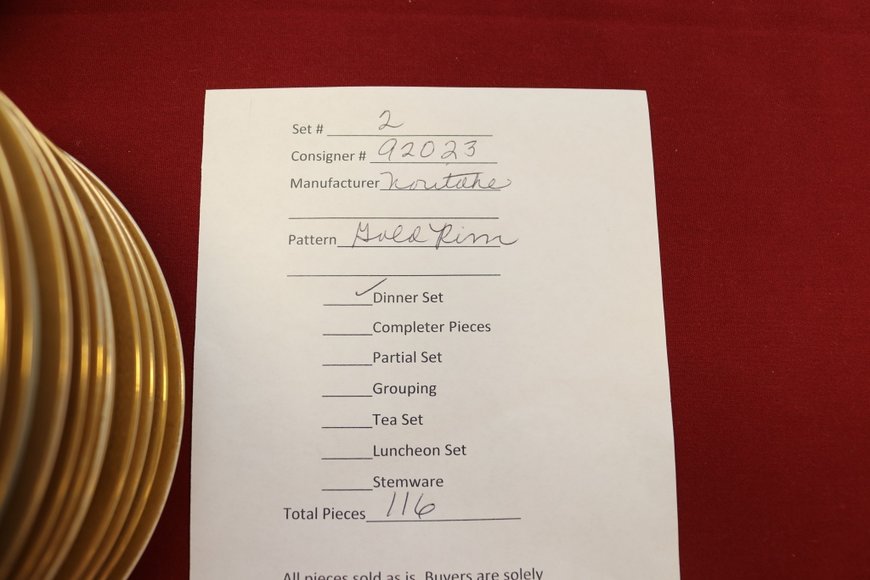 Set # 2
Consigner # 92023
Manufacturer Noritake
Pattern Gold Rim
✓ Dinner Set
Completer Pieces
Partial Set
Grouping
Tea Set
Luncheon Set
Stemware
Total Pieces 116
All pieces sold as is. Buyers are solely